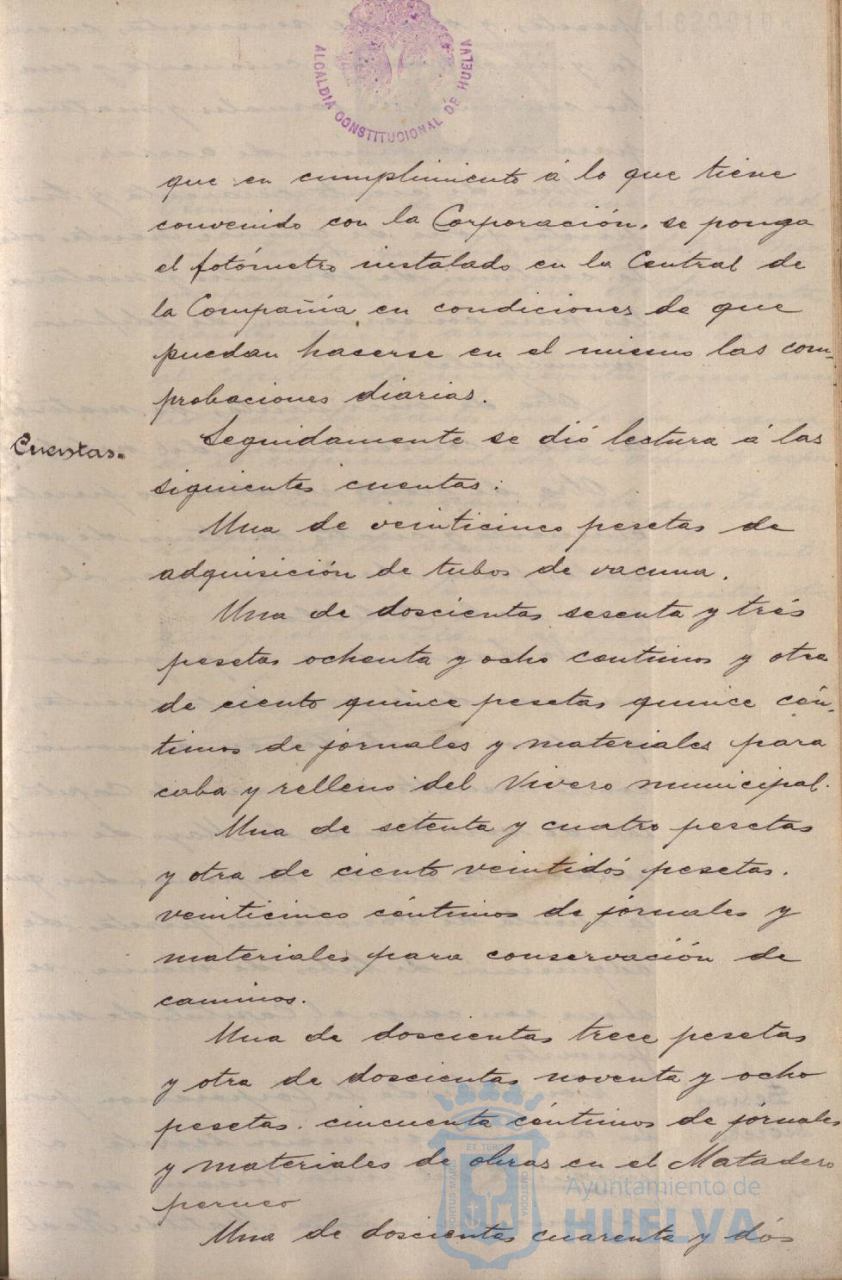 ALCALDIA CONSTITUCIONAL DE HUELVA
que en cumplimiento á lo que tiene
convenido con la Corporación, se ponga
el fotómetro instalado en la Central de
la Compañía en condiciones de que
puedan hacerse en el mismo las com-
probaciones diarias.
Cuentas.
Seguidamente se dió lectura á las
siguientes cuentas:
Una de veinticinco pesetas de
adquisición de tubos de vacuna.
Una de doscientas sesenta y trés
pesetas ochenta y ocho centimos y otra
de ciento quince pesetas quince cén-
timos de jornales y materiales para
caba y relleno del Vivero municipal.
Una de setenta y cuatro pesetas
y otra de ciento veintidós pesetas.
veinticinco céntimos de jornales y
materiales para conservación de
caminos.
Una de doscientas trece pesetas
y otra de doscientas noventa y ocho
pesetas. cincuenta céntimos de jornales
y materiales de obras en el Matadero
Una de doscientas cuarenta y dós
Ayuntamiento de
HUELVA